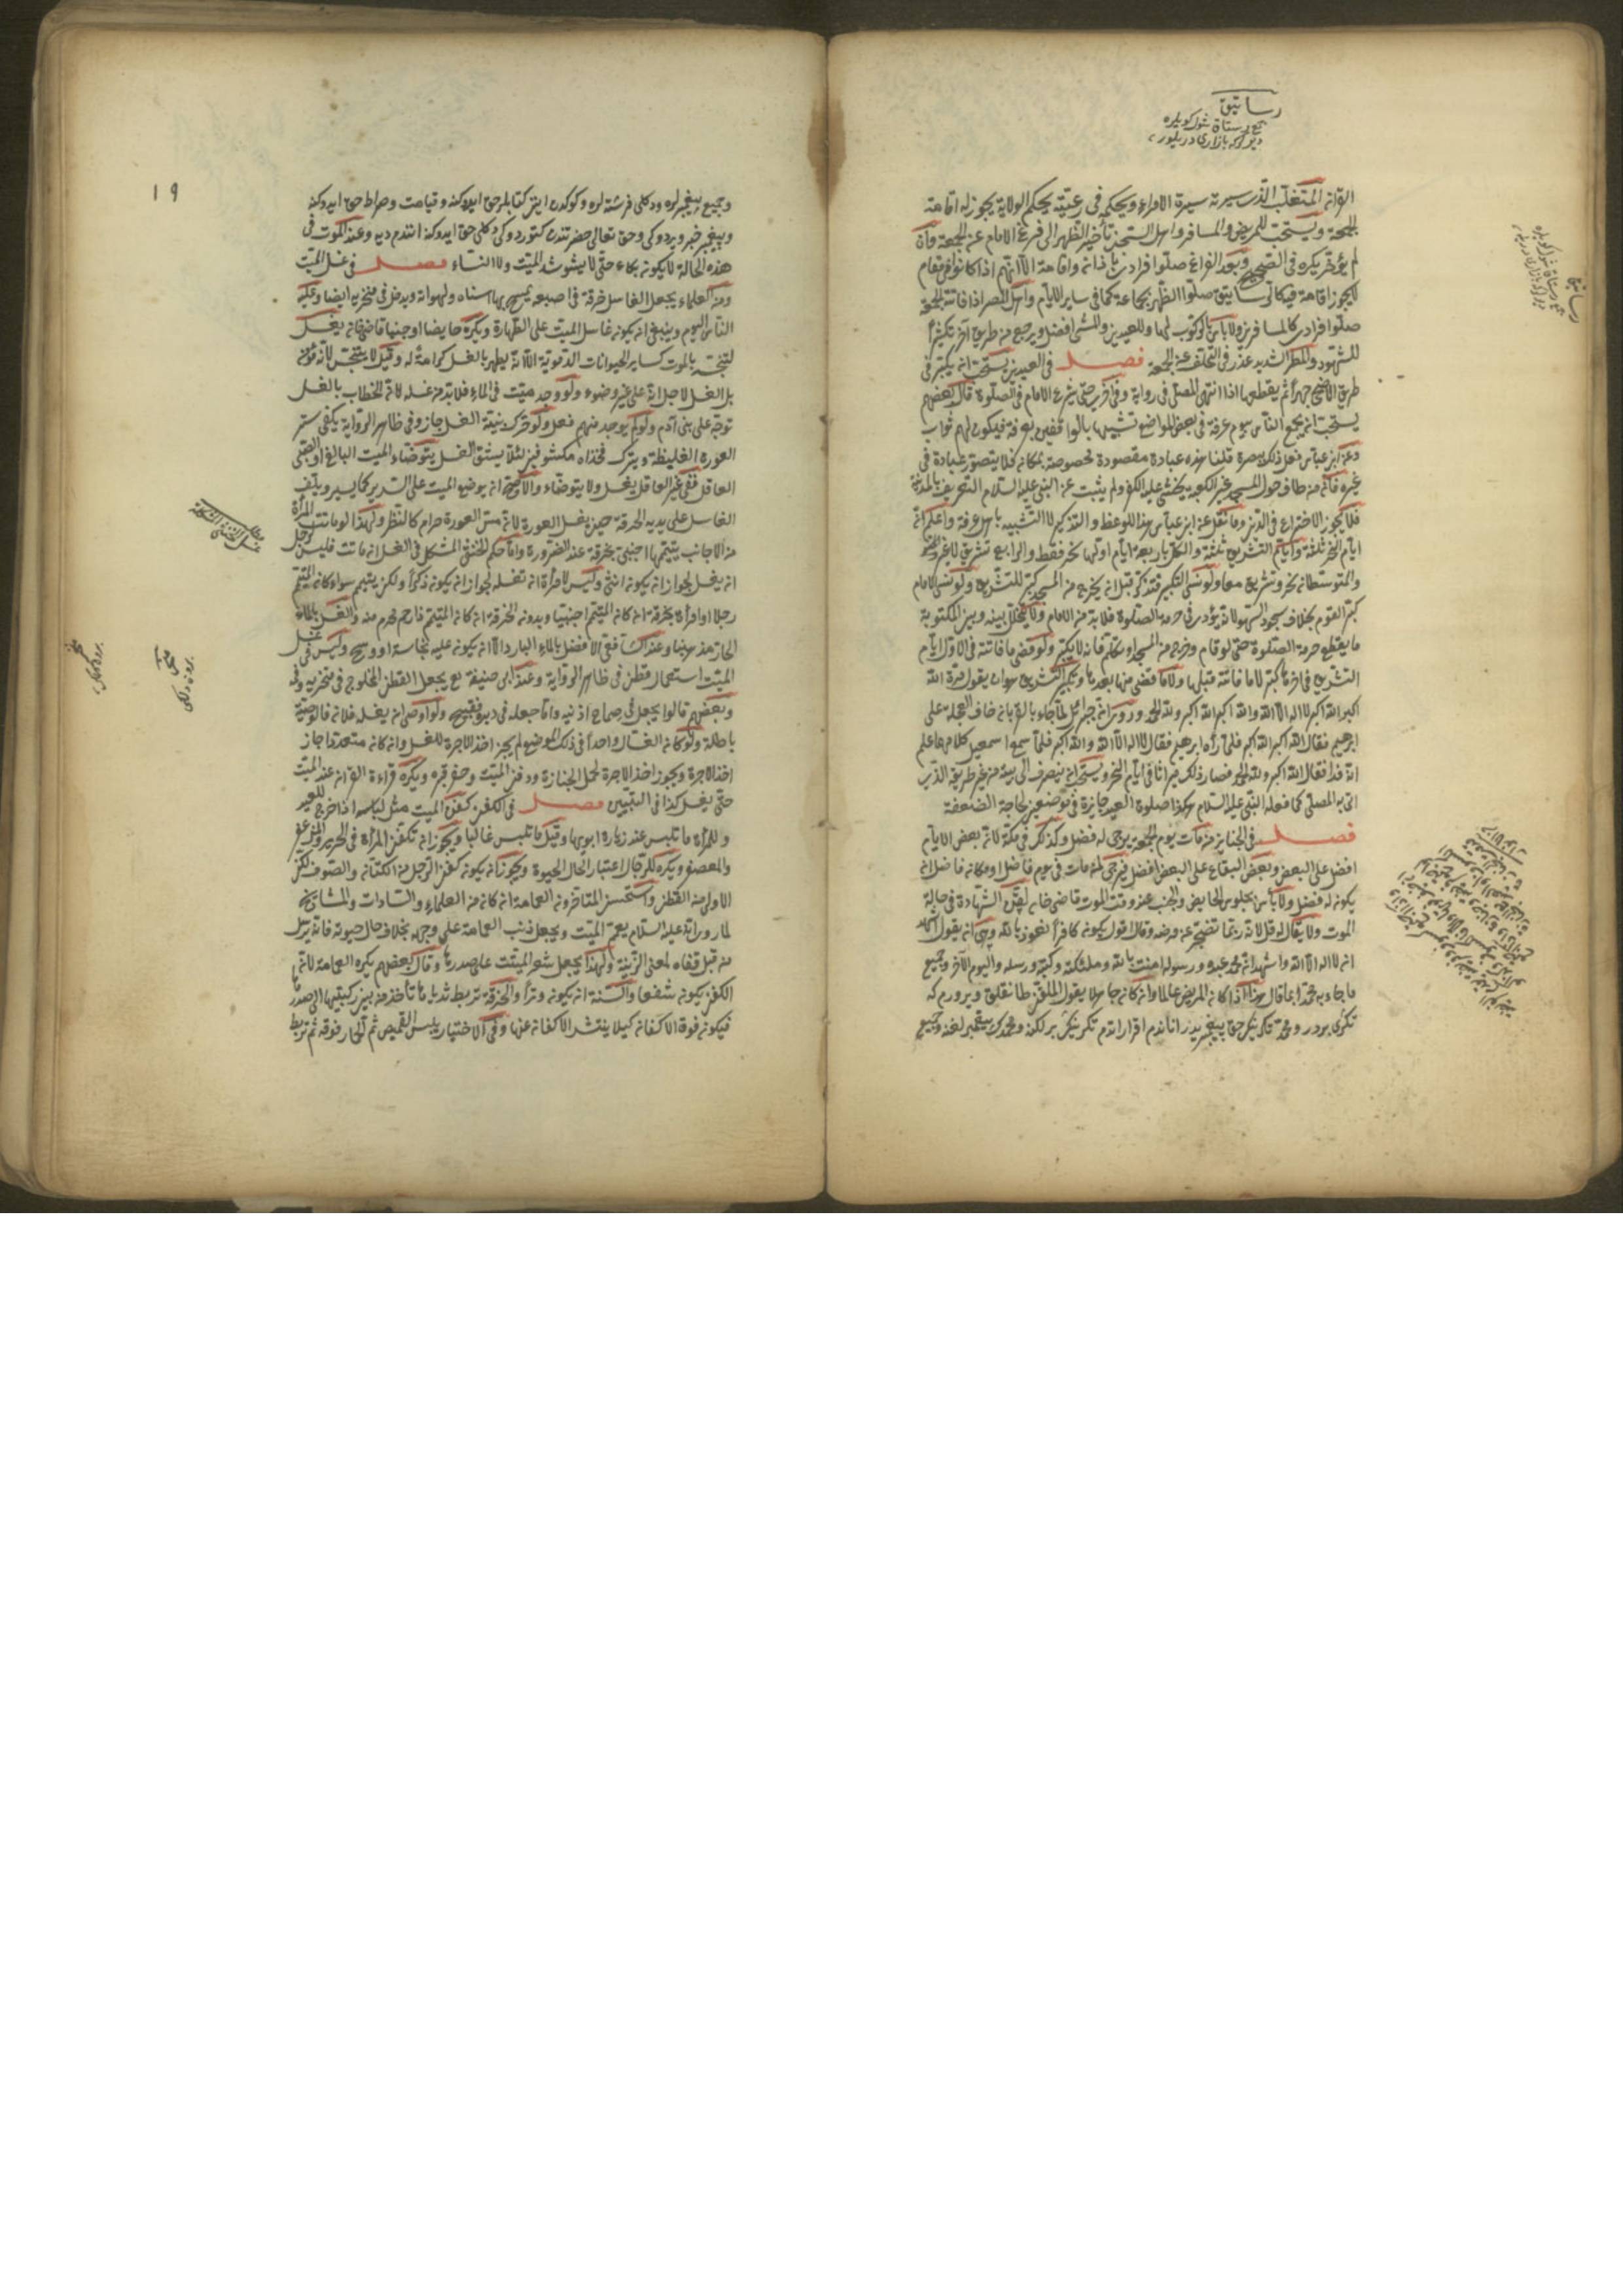 رساتيق
جمع رستاق
القرآن المتغلب الذى سيرته سيرة الامراء ويحكم فى رعيته بحكم الولاية يجوز له اقامة
الجمعة ويستحب للمريض والمسافر واهل السجن تأخير الظهر الى فراغ الامام عن الجمعة وان
لم يؤخر يكره فى الصحيح وبعد الفراغ صلوا فرادى باذان واقامة الا انهم اذا كانوا فى مقام
لا يجوز اقامة فيه كالرساتيق صلوا الظهر بجماعة كما فى ساير الايام واهل المصر اذا فاتته الجمعة
صلوا فرادى كالمسافرين ولا بأس بالركوب لها وللعيدين والمشى افضل ويرجع من طريق آخر تكثيرا
للشهود والمطر الشديد عذر فى التخلف عن الجمعة فصل فى العيدين يستحب ان يكبر فى
طريق الاضحى جهرا ثم يقطعها اذا انتهى المصلى فى رواية وفى اخرى حتى يشرع الامام فى الصلوة قال بعضهم
يستحب ان يجمع الناس يوم عرفة فى بعض المواضع تشبيها بالواقفين بعرفة فيكون لهم ثواب
وعن ابن عباس فعل ذلك ببصرة قلنا هذه عبادة مقصودة مخصوصة بمكان فلا يتصور عبادة فى
غيره فانه من طاف حول المسجد غير الكعبة يخشى عليه الكفر ولم يثبت عن النبى عليه السلام التعريف بالمدينة
فلا يجوز الاختراع فى الدين وما نقل عن ابن عباس هذا للوعظ والتذكير لا التشبيه باهل عرفة واعلم ان
ايام النحر ثلثة وايام التشريق ثلثة والكل باربعة ايام اولها نحر فقط والرابع تشريق لا غير
والمتوسطان نحر وتشريق معا ولو نسى التكبير فتذكر قبل ان يخرج من المسجد كبر للتشريق ولو نسى الامام
كبر القوم بخلاف سجود السهو لانه يؤدى فى حرمة الصلوة فلا بد من الامام ولا يتخلل بينه وبين المكتوبة
ما يقطع حرمة الصلوة حتى لو قام وخرج من المسجد او تكلم فانه لا يكبر ولو قضى ما فاتته فى الاول ايام
التشريق فى آخرها كبر لا ما فاتته قبلها ولا ما قضى منها بعدها وتكبير التشريق هو ان يقول مرة الله
اكبر الله اكبر لا اله الا الله والله اكبر الله اكبر ولله الحمد وروى ان جبرائل لما جاء بالقربان خاف العجلة على
ابرهيم فقال الله اكبر الله اكبر فلما رآه ابرهيم فقال لا اله الا الله والله اكبر فلما سمع اسمعيل كلامهما علم
انه فدا فقال الله اكبر ولله الحمد فصار ذلك ميراثا فى ايام النحر ويستحب ان ينصرف الى بيته من غير طريقه الذى
اتى به المصلى كما فعله النبى عليه السلام هكذا صلوة العيد جايزة فى موضعين لحاجة الضعفة
فصل فى الجنايز من مات يوم الجمعة يرجى له فضل وكذلك فى مكة لانه بعض الايام
افضل على البعض وبعض البقاع على البعض افضل فيرجى لمن مات فى يوم فاضل او مكان فاضل ان
يكون له فضل ولا بأس بجلوس الحايض والجنب عنده وقت الموت قاضى خان لقن الشهادة فى حالة
الموت ولا يقال له قل لانه ربما تضجر عن مرضه وقال لا اقول يكون كافرا نعوذ بالله وهى ان يقول اشهد
ان لا اله الا الله واشهد ان محمدا عبده ورسوله امنت بالله وملئكته وكتبه ورسله واليوم الآخر وجميع
ما جاء به محمد انما قال هذا اذا كان المريض عالما وان كان جاهلا يقول الملقن طانقلق ويرورم كه
تكرى بردر ومحمد تكرينك حق پيغمبريدر اناندم اقرار اتدم تكرينك برلكنه ومحمدك پيغمبرلغنه وجميع
١٩
وجميع پيغمبرلره ودكلى فرشته لره وكوكدن اينن كتابلر حق ايدوكنه وقيامت وصراط حق ايدوكنه
وپيغمبر خبر ويردوكى وحق تعالى حضرتندن كتوردوكى دكلى حق ايدوكنه انندم ديه وعند الموت فى
هذه الحالة لا يكون بكاء حتى لا يشوشه الميت ولا النساء فصل فى غسل الميت
ومن العلماء يجعل الغاسل خرقة فى اصبعه يمسح بها اسنانه ولهواته ويدخل فى منخريه ايضا وعليه
الناس اليوم وينبغى ان يكون غاسل الميت على الطهارة ويكره حايضا او جنبا قاضى خان يغسل
لتنجسه بالموت كساير الحيوانات الدموية الا انه يطهر بالغسل كرامة له وقيل لا يتنجس لانه مؤمن
بل الغسل لاجل انه على غير وضوء ولو وجد ميت فى الماء فلا بد من غسله لانه الخطاب بالغسل
توجه على بنى آدم ولم يوجد منهم فعل ولو حركه بنية الغسل جاز وفى ظاهر الرواية يكفى ستر
العورة الغليظة ويترك فخذاه مكشوفين لئلا يشق الغسل يتوضاء الميت البالغ او الصبى
العاقل ففى غير العاقل يغسل ولا يتوضاء والاصح ان يوضع الميت على السرير كما يسير ويلف
الغاسل على يديه الخرقة حين يغسل العورة لانه مس العورة حرام كالنظر ولهذا لو ماتت المرأة
من الاجانب ييممها اجنبى بخرقة عند الضرورة واما حكم الخنثى المشكل فى الغسل ان ماتت فليس لرجل
ان يغسل لجواز ان يكون انثى وليس لامرأة ان تغسله لجواز ان يكون ذكرا ولكن ييمم سواء كان الميمم
رجلا او امرأة بخرقة ان كان الميمم اجنبيا وبدون الخرقة ان كان الميمم ذا رحم محرم منه والغسل بالماء
الحار عندنا وعند الشافعى الافضل بالماء البارد الا ان يكون عليه نجاسة او وسخ وليس فى غسل
الميت استعمال قطن فى ظاهر الرواية وعند ابى حنيفة يجعل القطن المحلوج فى منخريه وفمه
وبعضهم قالوا يجعل فى صماخ اذنيه واما جعله فى دبره فقبيح ولو اوصى ان يغسله فلان فالوصية
باطلة ولو كان الغسال واحدا فى ذلك الموضع لم يجز اخذ الاجرة للغسل وان كان متعددا جاز
اخذ الاجرة ويجوز اخذ الاجرة لحمل الجنازة ودفن الميت وحفر قبره ويكره قراءة القرآن عند الميت
حتى يغسل كذا فى التبيين فصل فى الكفن كفن الميت مثل لباسه اذا خرج للعيد
وللمرأة ما تلبس عند زيارة ابويها وقيل ما تلبس غالبا ويجوز ان تكفن المرأة فى الحرير والمزعفر
والمعصفر ويكره للرجال اعتبارا لحال الحيوة ويجوز ان يكون كفن الرجل من الكتان والصوف لكن
الاولى من القطن واستحسن المتأخرون العمامة ان كان من العلماء والسادات والمشايخ
لما روى انه عليه السلام يعمم الميت ويجعل ذنب العمامة على وجهه بخلاف حال حيوته فانه يرسل
من قبل قفاه لمعنى الزينة ولهذا يجعل شعر الميتت على صدرها وقال بعضهم يكره العمامة لانه
الكفن يكون شفعا والسنة ان يكون وترا والخرقة تربط ثدياها تأخذ من بين ركبتيها الى صدرها
فيكون فوق الاكفان كيلا ينتشر الاكفان عنها وفى الاختيار يلبس القميص ثم الخمار فوقه ثم تربط